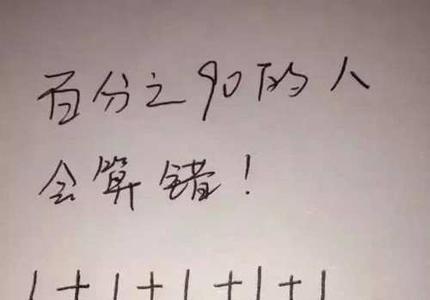 百分之90的人
会算错!
1+1+1+1+1